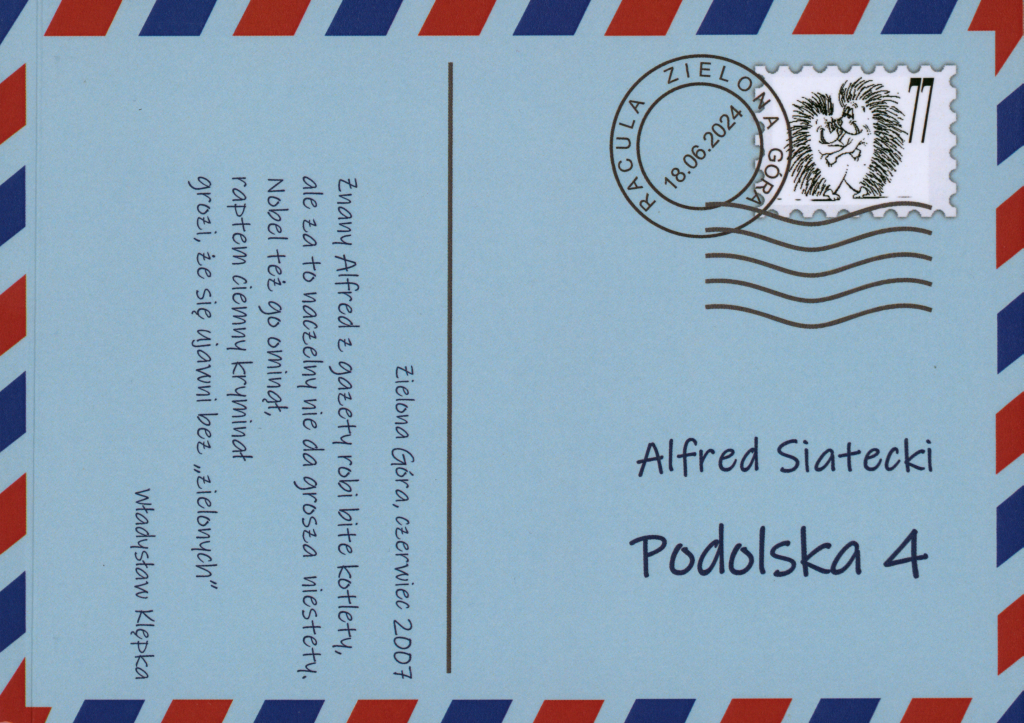 Zielona Góra, czerwiec 2007
Znany Alfred z gazety robi bite kotlety,
ale za to naczelny nie da grosza niestety.
Nobel też go ominął,
raptem ciemny kryminał
grozi, że się ujawni bez „zielonych”
Władysław Klępka
RACULA ZIELONA GÓRA
18.06.2024
77
Alfred Siatecki
Podolska 4